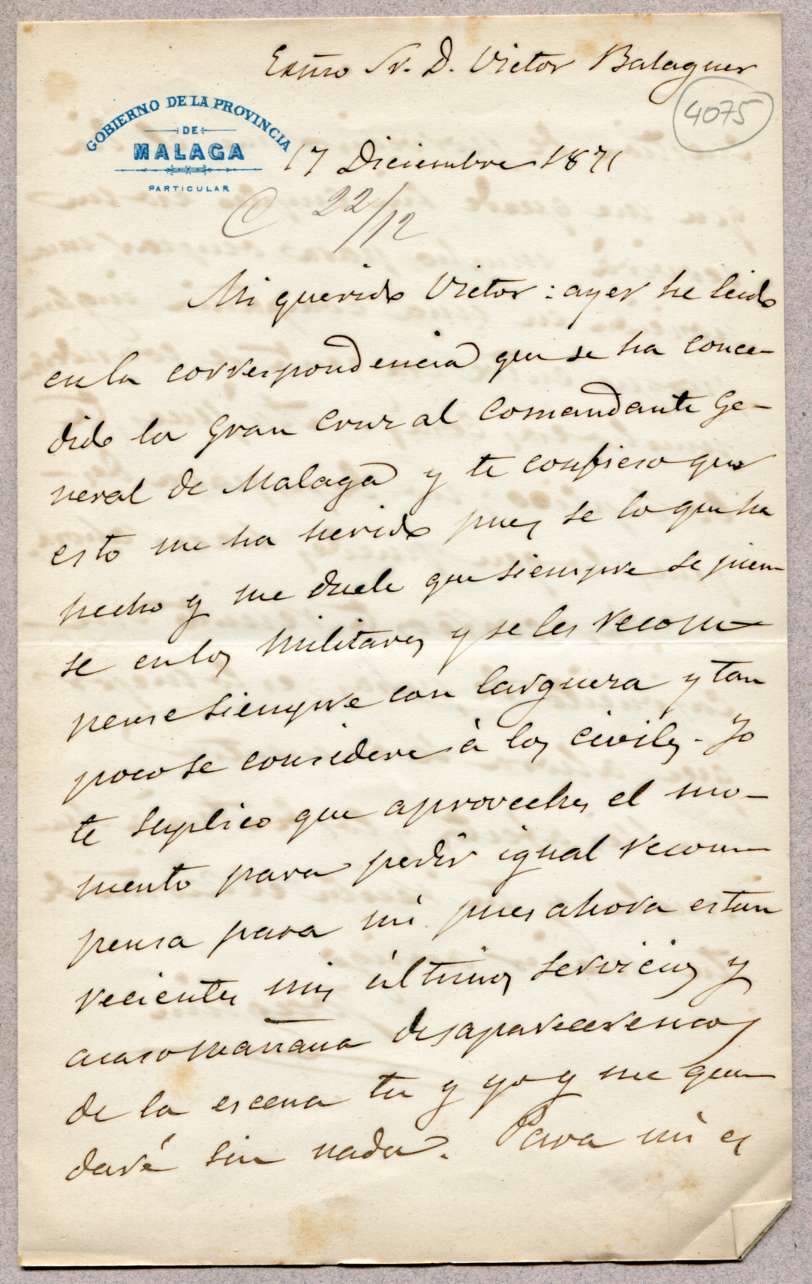 Exmo Sr. D. Victor Balaguer
4075
GOBIERNO DE LA PROVINCIA
DE
MALAGA
PARTICULAR
17 Diciembre 1871
C 22/12
Mi querido Victor: ayer he leido
en la correspondencia que se ha conce-
dido la gran cruz al comandante Ge-
neral de Malaga y te confieso que
esto me ha herido pues se lo que ha
hecho y me duele que siempre se pien
se en los militares y se les recom-
pense siempre con larguera y tan
poco se considere á los civiles. Yo
te suplico que aproveches el mo-
mento para pedir igual recom-
pensa para mi pues ahora estan
recientes mis últimos servicios y
acaso mañana desapareceremos
de la escena tu y yo y me que
daré sin nada. Para mi es